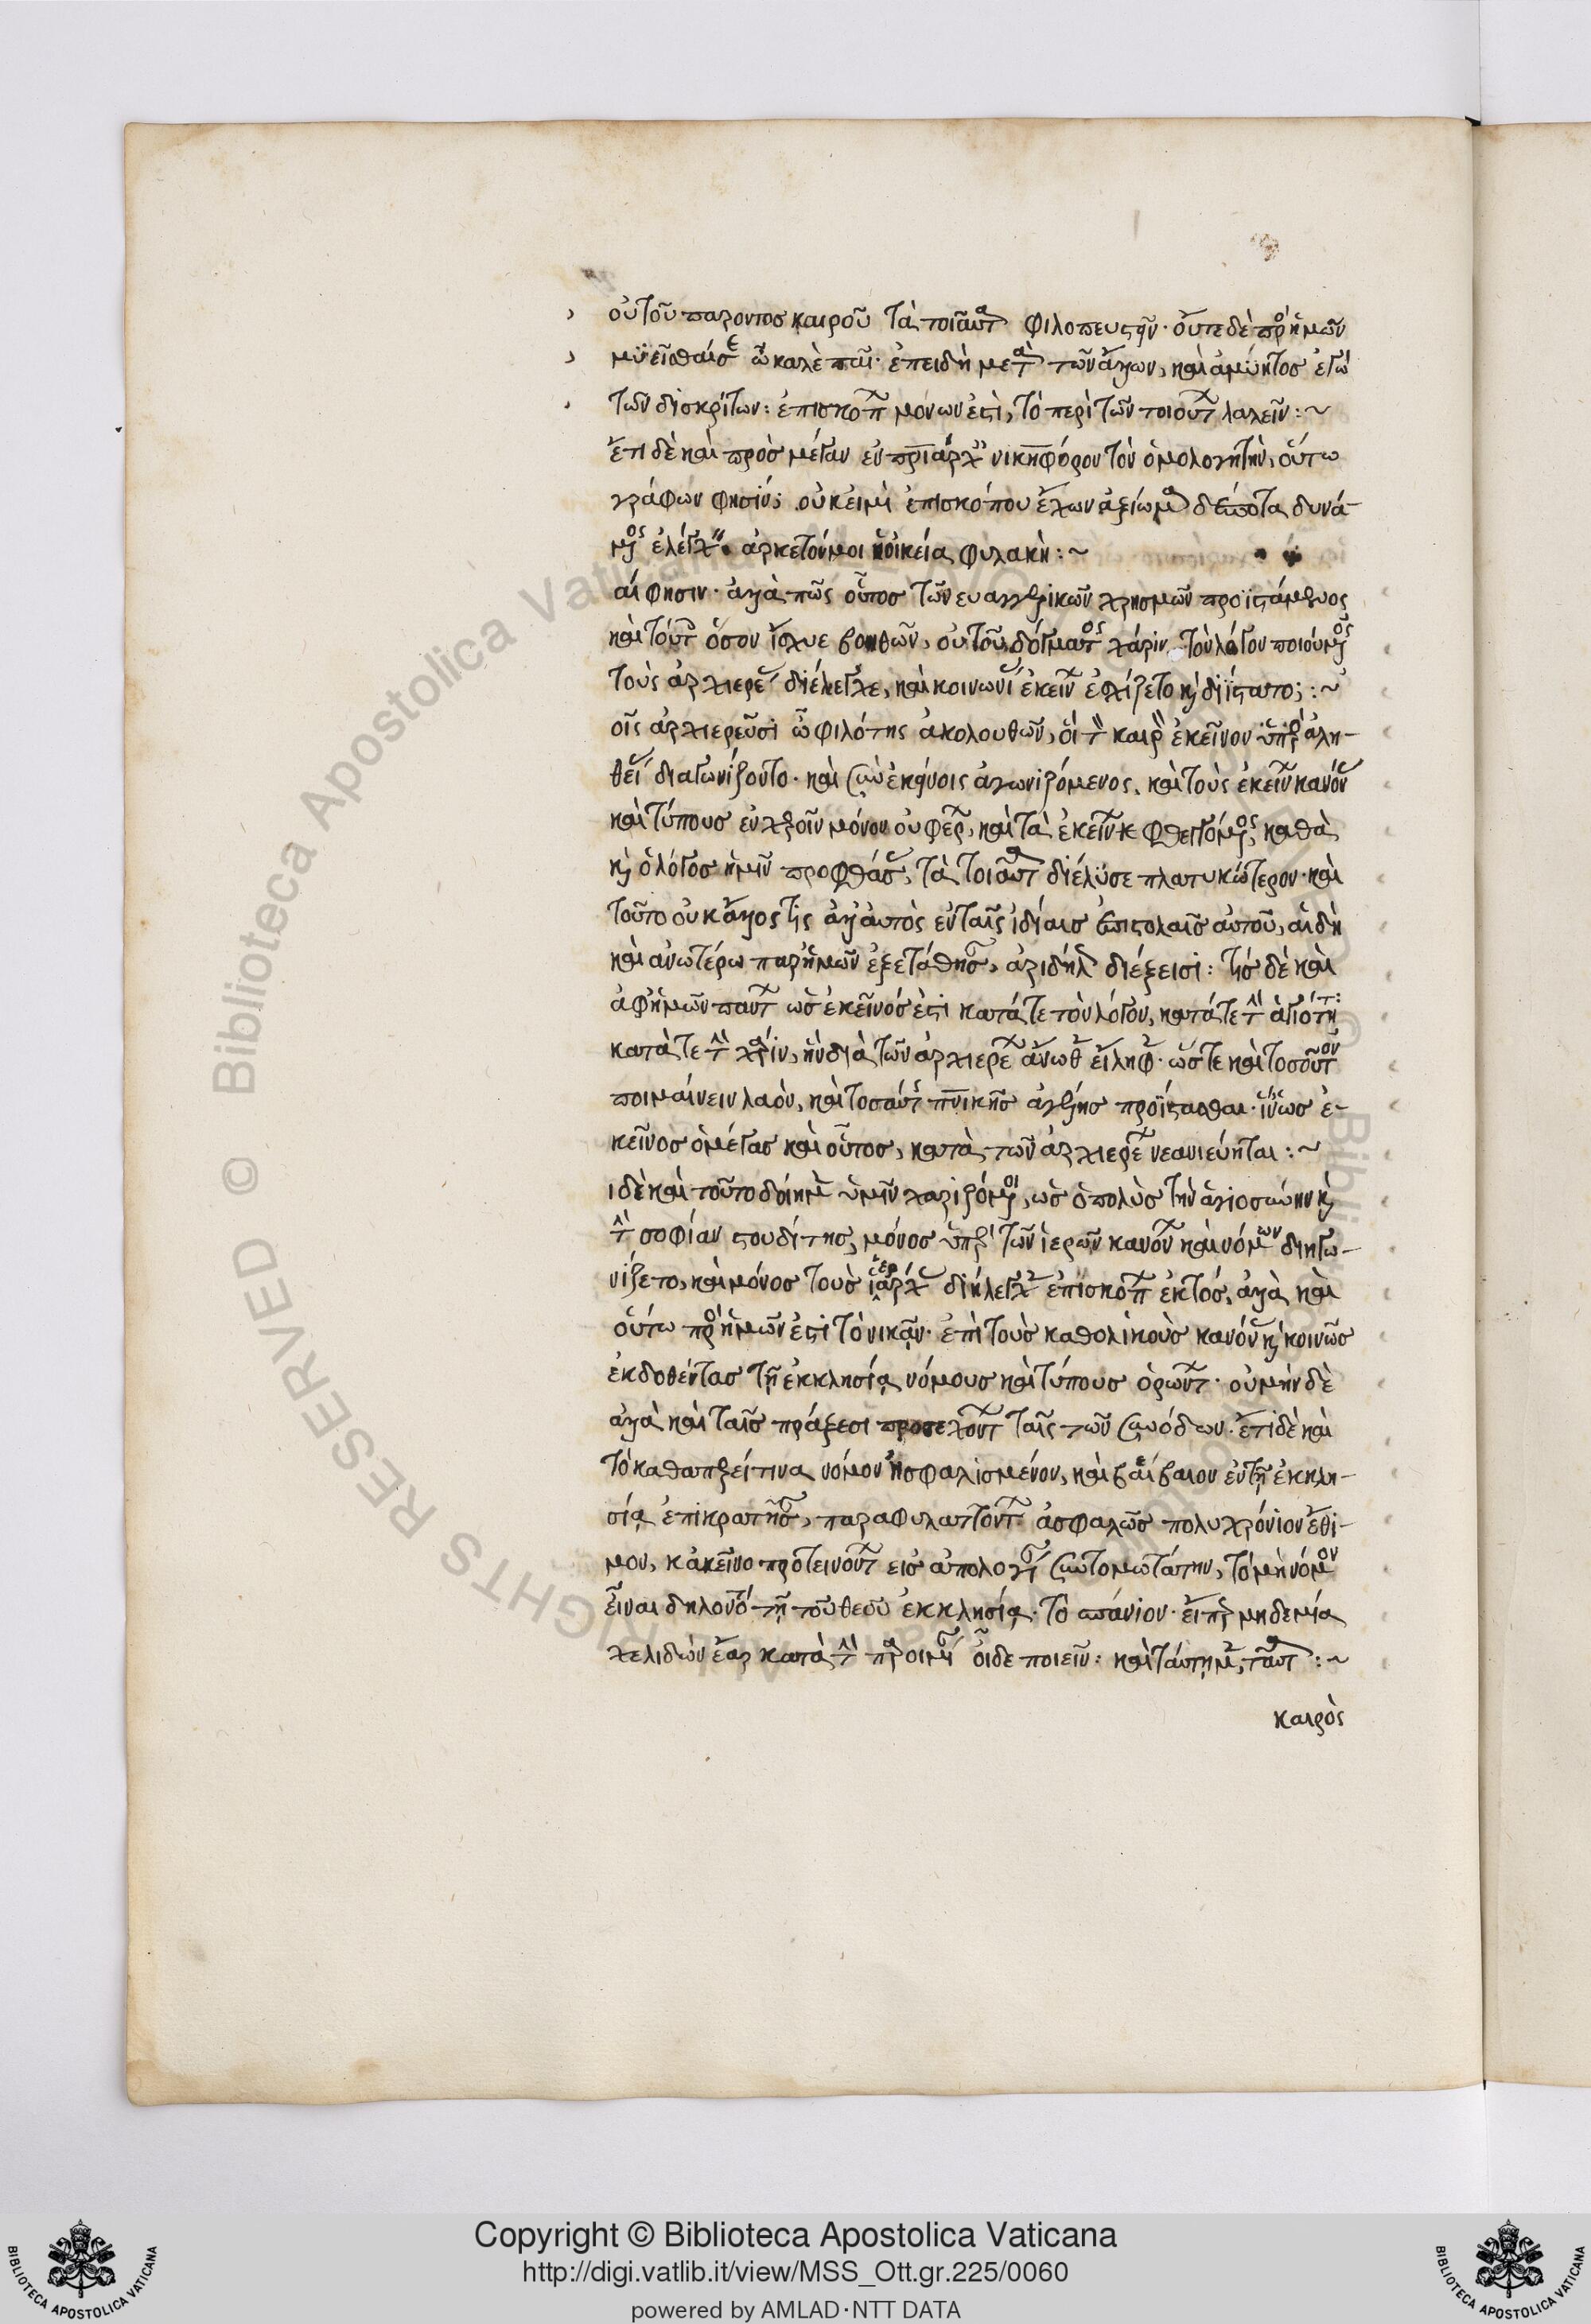 οὐ τοῦ παρόντος καιροῦ τὰ τοιαῦτα φιλοπευστῆν· οὔτε δὲ πρὸ ἡμῶν
μυεῖσθαί σε ὦ καλὲ παῖ· ἐπειδὴ μετὰ τῶν ἄλλων, καὶ ἀμύητος ἐγὼ
τῶν δισκρίτων: ἐπισκόπων μόνων ἐστὶ, τὸ περὶ τῶν τοιούτων λαλεῖν:~
ἔτι δὲ καὶ πρὸς μέγαν ἐν πριάρχαις νικηφόρον τὸν ὁμολογητὴν, οὕτω
γράφων φησίν; οὐκ εἰμὶ ἐπισκόπου ἔχων ἀξίωμα δεσπότα δυνά-
μενος ἐλέγχειν. ἀρκετόν μοι ἡ οἰκεία φυλακὴ:~
αί φησιν· ἀλλὰ πῶς οὗτος τῶν ευαγγελικῶν χρησμῶν προϊστάμενος
καὶ τούτοις ὅσον ἴσχυε βοηθῶν, οὐ τοῦ δόγματος χάριν τὸν λόγον ποιούμενος
τοὺς ἀρχιερεῖς διέλεγχε, καὶ κοινωνίας ἐκείνων ἐχωρίζετο καὶ διΐστατο; :~
οἷς ἀρχιερεῦσι ὦ φιλότης ἀκολουθῶν, οἳ τὸν καιρὸν ἐκεῖνον ὑπὲρ ἀλη-
θείας διαγωνίζοντο· καὶ συν ἐκείνοις ἀγωνιζόμενος, καὶ τοὺς ἐκείνων κανόνας
καὶ τύπους ἐν χεροῖν μόνον οὐ φέρων, καὶ τὰ ἐκείνων φθεγγόμενος, καθὰ
καὶ ὁ λόγος ἡμῖν προφθάσας, τὰ τοιαῦτα διέλυσε πλατυκώτερον· καὶ
τοῦτο οὐκ ἄλλος τις ἀλλ' αὐτὸς ἐν ταῖς ἰδίαις ἐπιστολαῖς αὐτοῦ, αἳ δὴ
καὶ ἀνωτέρω παρ' ἡμῶν ἐξετάθησαν, ἀριδήλως διέξεισι: τίς δὲ καὶ
ἀφ' ἡμῶν πάντων ὡς ἐκεῖνός ἐστι κατά τε τὸν λόγον, κατά τε τὴν ἁγιότητα
κατά τε τὴν χάριν, ἣν διὰ τῶν ἀρχιερέων ἄνωθεν εἴληφεν· ὥστε καὶ τοσοῦτον
ποιμαίνειν λαὸν, καὶ τοσαύτης πνικῆς ἀγέλης προΐστασθαι· ἵν' ὡς ἐ-
κεῖνος ὁ μέγας καὶ οὗτος, κατὰ τῶν ἀρχιερέων νεανιεύηται:~
ιδὲ καὶ τοῦτο δοίημεν ὑμῖν χαριζόμενοι, ὡς ὁ πολὺς τὴν ἁγιοσύνην καὶ
τὴν σοφίαν στουδίτης, μόνος ὑπὲρ τῶν ἱερῶν κανόνων καὶ νόμων διηγω-
νίζετο, καὶ μόνος τοὺς ἱεράρχας διήλεγχεν ἐπισκόπων ἐκτὸς, ἀλλὰ καὶ
οὕτω πρὸ ἡμῶν ἐστι τὸ νικᾶν· ἐπὶ τοὺς καθολικοὺς κανόνας καὶ κοινῶς
ἐκδοθέντας τῇ ἐκκλησίᾳ νόμους καὶ τύπους ὁρώντων· οὐ μὴν δὲ
ἀλλὰ καὶ ταῖς πράξεσι προσεχόντων ταῖς τῶν συνόδων· ἔτι δὲ καὶ
τὸ καθαπερεί τινα νόμον ἠσφαλισμένον, καὶ βαίβαιον ἐν τῇ ἐκκλη-
σίᾳ ἐπικρατῆσαν, παραφυλαττόντων ἀσφαλῶς πολυχρόνιον ἔθι-
μον, κἀκεῖνο προτεινόντων εἰς ἀπολογίαν συντομωτάτην, τὸ μὴ νόμον
εἶναι δηλονότι τῇ τοῦ θεοῦ ἐκκλησίᾳ, τὸ σπάνιον· εἴπερ μηδεμία
χελιδὼν ἔαρ κατὰ τὴν παροιμίαν οἶδε ποιεῖν: καὶ ταύτῃ μὲν ταῦτα:~
καιρὸς
Copyright © Biblioteca Apostolica Vaticana
http://digi.vatlib.it/view/MSS_Ott.gr.225/0060
powered by AMLAD·NTT DATA